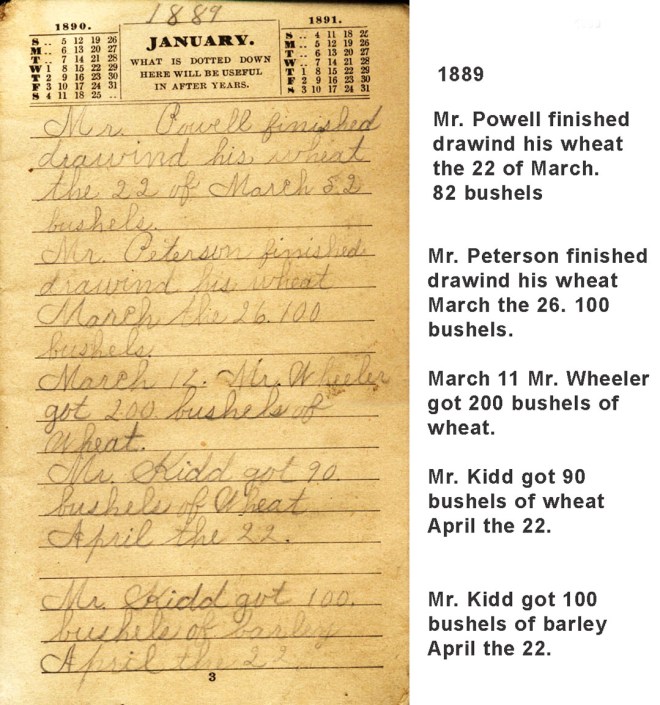 1889
1890.
S .. 5 12 19 26
M .. 6 13 20 27
T .. 7 14 21 28
W 1 8 15 22 29
T 2 9 16 23 30
F 3 10 17 24 31
S 4 11 18 25 ..
JANUARY.
WHAT IS DOTTED DOWN
HERE WILL BE USEFUL
IN AFTER YEARS.
1891.
S .. 4 11 18 25
M .. 5 12 19 26
T .. 6 13 20 27
W .. 7 14 21 28
T 1 8 15 22 29
F 2 9 16 23 30
S 3 10 17 24 31
Mr. Powell finished
drawind his wheat
the 22 of March
bushels.
Mr. Peterson finished
drawind his wheat
March the 26. 100
bushels.
March Mr. Wheeler
got 200 bushels of
Wheat.
Mr. Kidd got 90.
bushels of Wheat
April the 22.
Mr. Kidd got 100.
bushels of barley
April the 22
3
1889
Mr. Powell finished
drawind his wheat
the 22 of March.
82 bushels
Mr. Peterson finished
drawind his wheat
March the 26. 100
bushels.
March 11 Mr. Wheeler
got 200 bushels of
wheat.
Mr. Kidd got 90
bushels of wheat
April the 22.
Mr. Kidd got 100
bushels of barley
April the 22.